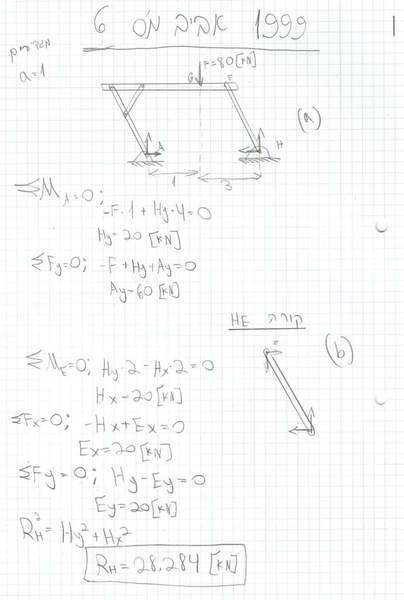 1999 אביב מס' 6
1
a=1
F=80[kN]
G
E
(a)
A
H
1
3
ΣM_A=0;
-F·1+Hy·4=0
Hy=20[kN]
ΣFy=0; -F+Hy+Ay=0
Ay=60[kN]
קורה HE
(b)
E
ΣM_E=0; Hy·2-Hx·2=0
Hx-20[kN]
ΣFx=0; -Hx+Ex=0
Ex=20[kN]
ΣFy=0; Hy-Ey=0
Ey=20[kN]
R_H²=Hy²+Hx²
R_H=28.284 [kN]